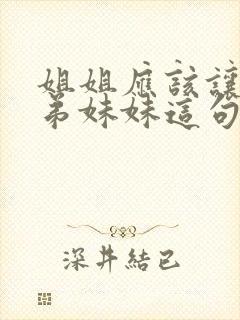 姐姐應該讓
弟妹妹這句
深井結已